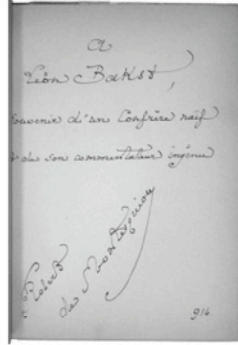 A
Léon Bakst,
souvenir d'un Confrère naïf
& de son commentateur ingénu
Robert
de Montesquiou
914